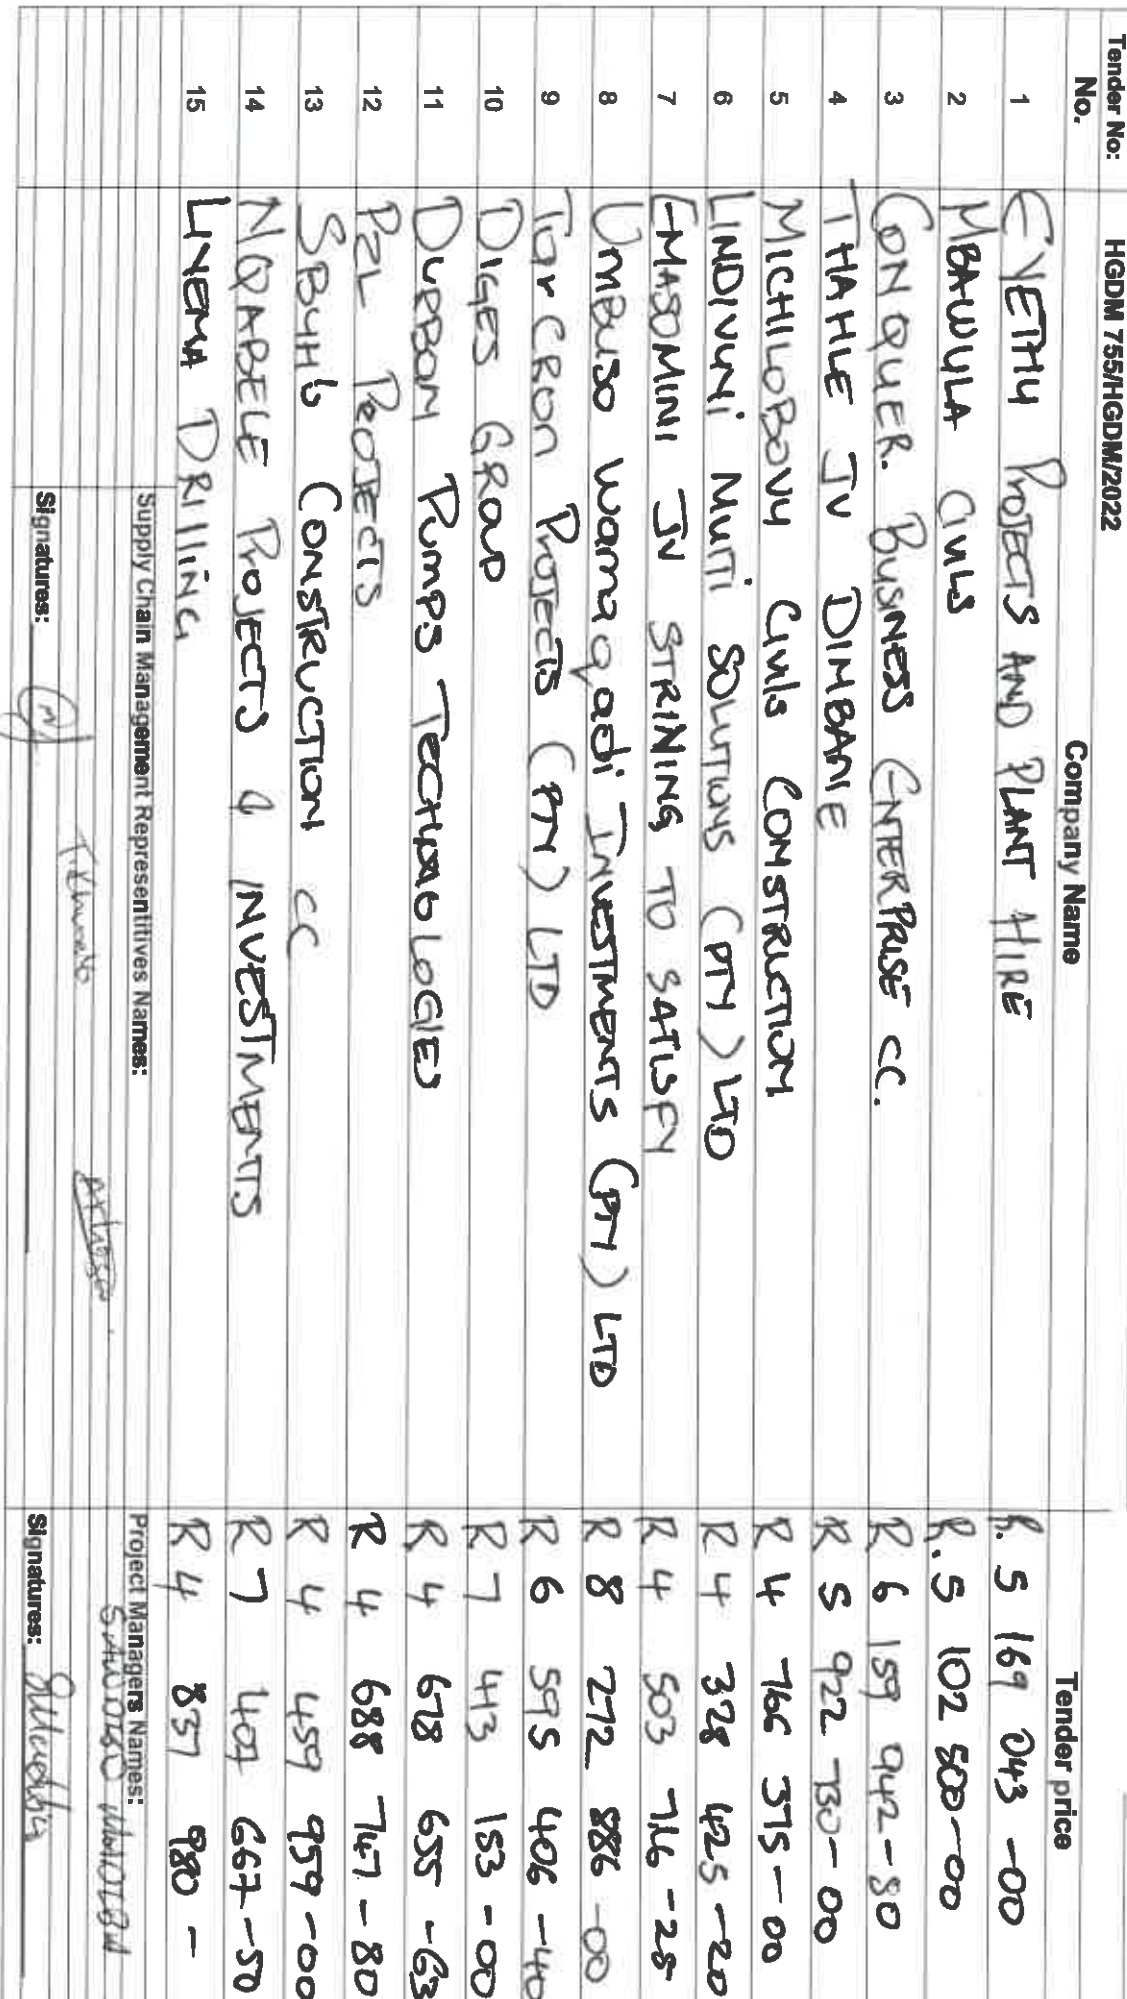 Tender No: HGDM 755/HGDM/2022
No. Company Name Tender price
1 EYETHU PROJECTS AND PLANT HIRE R. 5 169 043 -00
2 MBAWULA CIVILS R. 5 102 500-00
3 CONQUER. BUSINESS ENTERPRISE CC. R 6 159 942-80
4 THAHLE JV DIMBANE R 5 922 730-00
5 MICHILOBOVU Civils CONSTRUCTION R 4 766 375-00
6 LINDIVUNi MUlTi SOLUTIONS (PTY) LTD R 4 328 425-20
7 EMASOMINI JV STRINING TO SATISFY R 4 503 716-25
8 UMBUSO WamaQadi INVESTMENTS (PTY) LTD R 8 272 886-00
9 TarCRON PROJECTS (PTY) LTD R 6 595 406-40
10 DIGES GROUP R 7 443 153-00
11 DURBAN PUMPS TECHNOLOGIES R 4 678 655-63
12 PZL PROJECTS R 4 688 747-80
13 SBUH'S CONSTRUCTION CC R 4 459 959-00
14 NQABELE PROJECTS & INVESTMENTS R 7 407 667-50
15 LIYEMA DRIllING R 4 837 980 -
Supply Chain Management Representitives Names: Project Managers Names:
Signatures: Signatures: